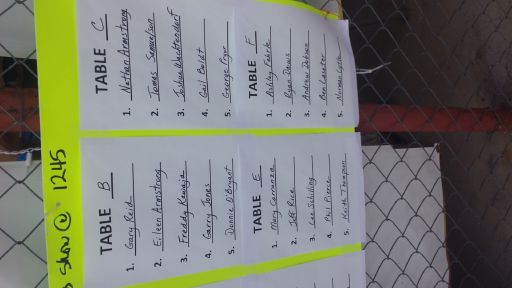 show @ 1245
TABLE B
1. Gary Reid
2. Eileen Armstrong
3. Freddy Kawaja
4. Garry Jones
5. Donnie O'Bryant
TABLE E
1. Mary Carranza
2. Jeff Rice
3. Lee Schilling
4. Phil Pierce
5. Keith Thompson
TABLE C
1. Nathan Armstrong
2. James Samuelson
3. Joshua Wachtendorf
4. Gail Boldt
5. George Pryor
TABLE F
1. Ashley
2. Ryan Daws
3. Andrew Dobson
4. Ben
5. Norman